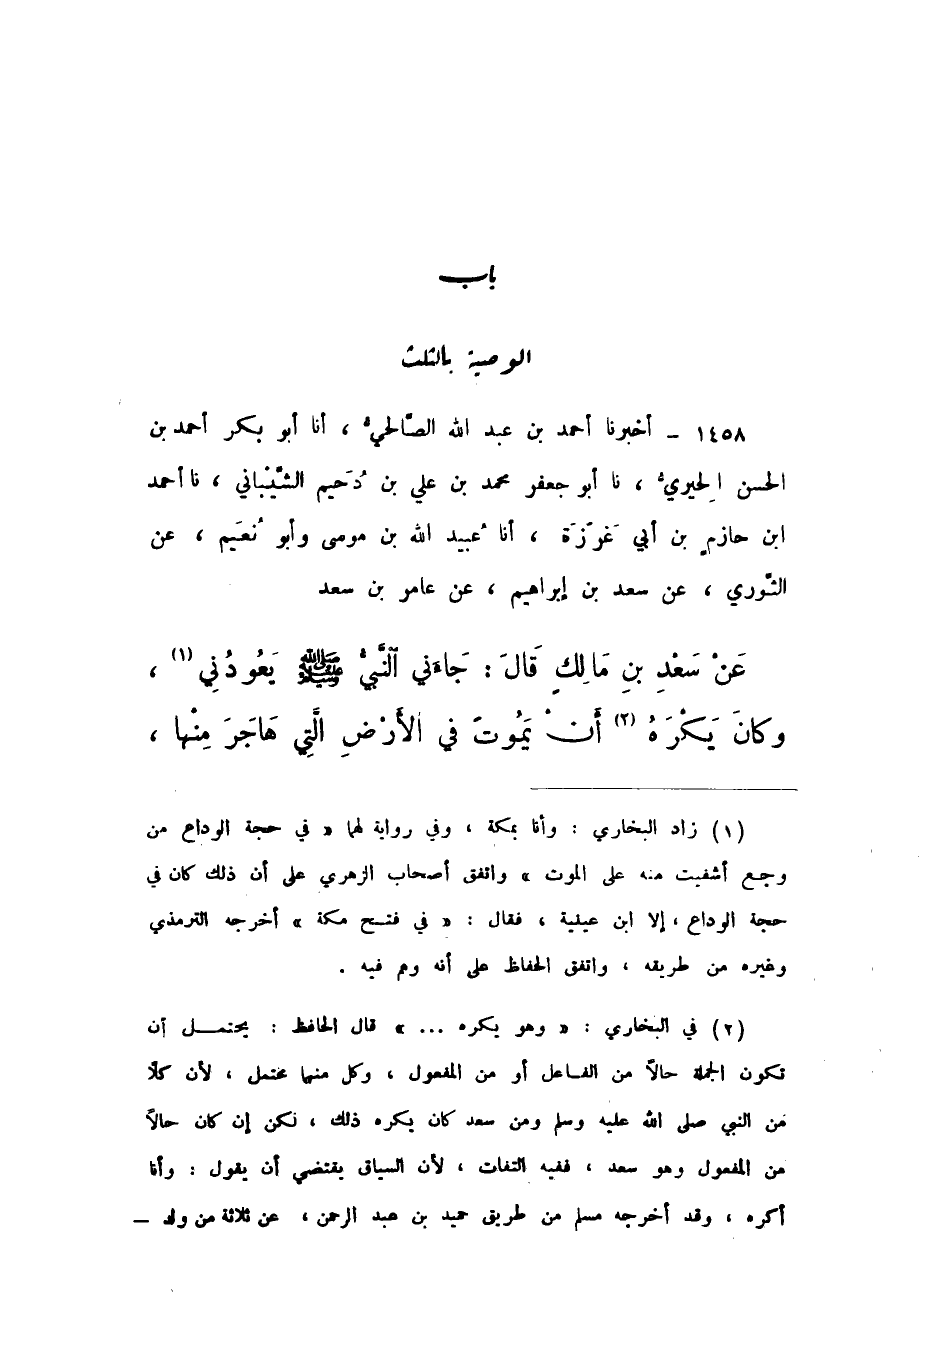 باب
الوصية بالثلث
١٤٥٨ ـ أخبرنا أحمد بن عبد الله الصَّالحيُّ ، أنا أبو بكر أحمد بن
الحسن الحِيريُّ ، نا أبو جعفر محمد بن علي بن دُحَيم الشَّيْباني ، نا أحمد
ابن حازمِ بن أبي غَرزَة ، أنا عُبيد الله بن موسى وأبو نُعَيم ، عن
الثَّوري ، عن سعد بن إبراهيم ، عن عامر بن سعد
عَنْ سَعْدِ بنِ مَالِكٍ قَالَ : جَاءَني ٱلنَّبيُّ ﷺ يَعُودُنِي (١) ،
وكَانَ يَكْرَهُ (٢) أَنْ يَمُوتَ في الأَرْضِ الَّتِي هَاجَرَ مِنْها ،
(١) زاد البخاري : وأنا بمكة ، وفي رواية لهما « في حجة الوداع من
وجع أشفيت منه على الموت » واتفق أصحاب الزهري على أن ذلك كان في
حجة الوداع ، إلا ابن عيينة ، فقال : « في فتح مكة » أخرجه الترمذي
وغيره من طريقه ، واتفق الحفاظ على أنه وهم فيه .
(٢) في البخاري : « وهو يكره ... » قال الحافظ : يحتمل أن
تكون الجملة حالاً من الفاعل أو من المفعول ، وكل منهما محتمل ، لأن كلًّا
من النبي صلى الله عليه وسلم ومن سعد كان يكره ذلك ، لكن إن كان حالاً
من المفعول وهو سعد ، ففيه التفات ، لأن السياق يقتضي أن يقول : وأنا
أكره ، وقد أخرجه مسلم من طريق حميد بن عبد الرحمن ، عن ثلاثة من ولد ـ